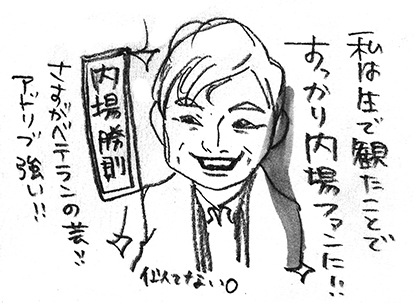 私は生で観たことで
すっかり内場ファンに!!
内場勝則
さすがベテランの芸!!
アドリブ強い!!
似てない○